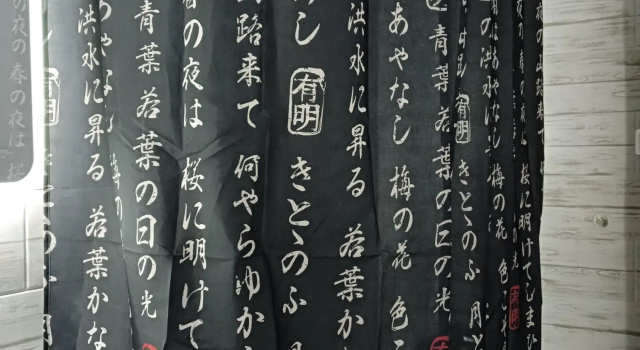 桜に明けてしまひ
有明
の光
梅の花 色
の洪水に
有明
きとゝのふ 月
青葉若葉の日の光
あやなし 梅の花 色こ
洪水に昇る 若葉か
し
有明
きとゝのふ
路来て 何やらゆか
の夜は 桜に明けて
青葉若葉の日の光
洪水に昇る 若葉かな
し
有明
のふ 月
の夜の 春の夜は 桜